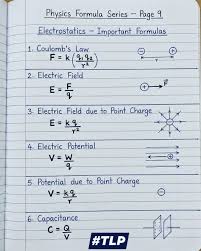 Physics Formula Series – Page 9
Electrostatics – Important Formulas
1. Coulomb's Law
F = k (q₁q₂/r²)
2. Electric Field
E = F/q
3. Electric Field due to Point Charge
E = kq/r²
4. Electric Potential
V = W/q
5. Potential due to Point Charge
V = kq/r
6. Capacitance
C = Q/V
#TLP